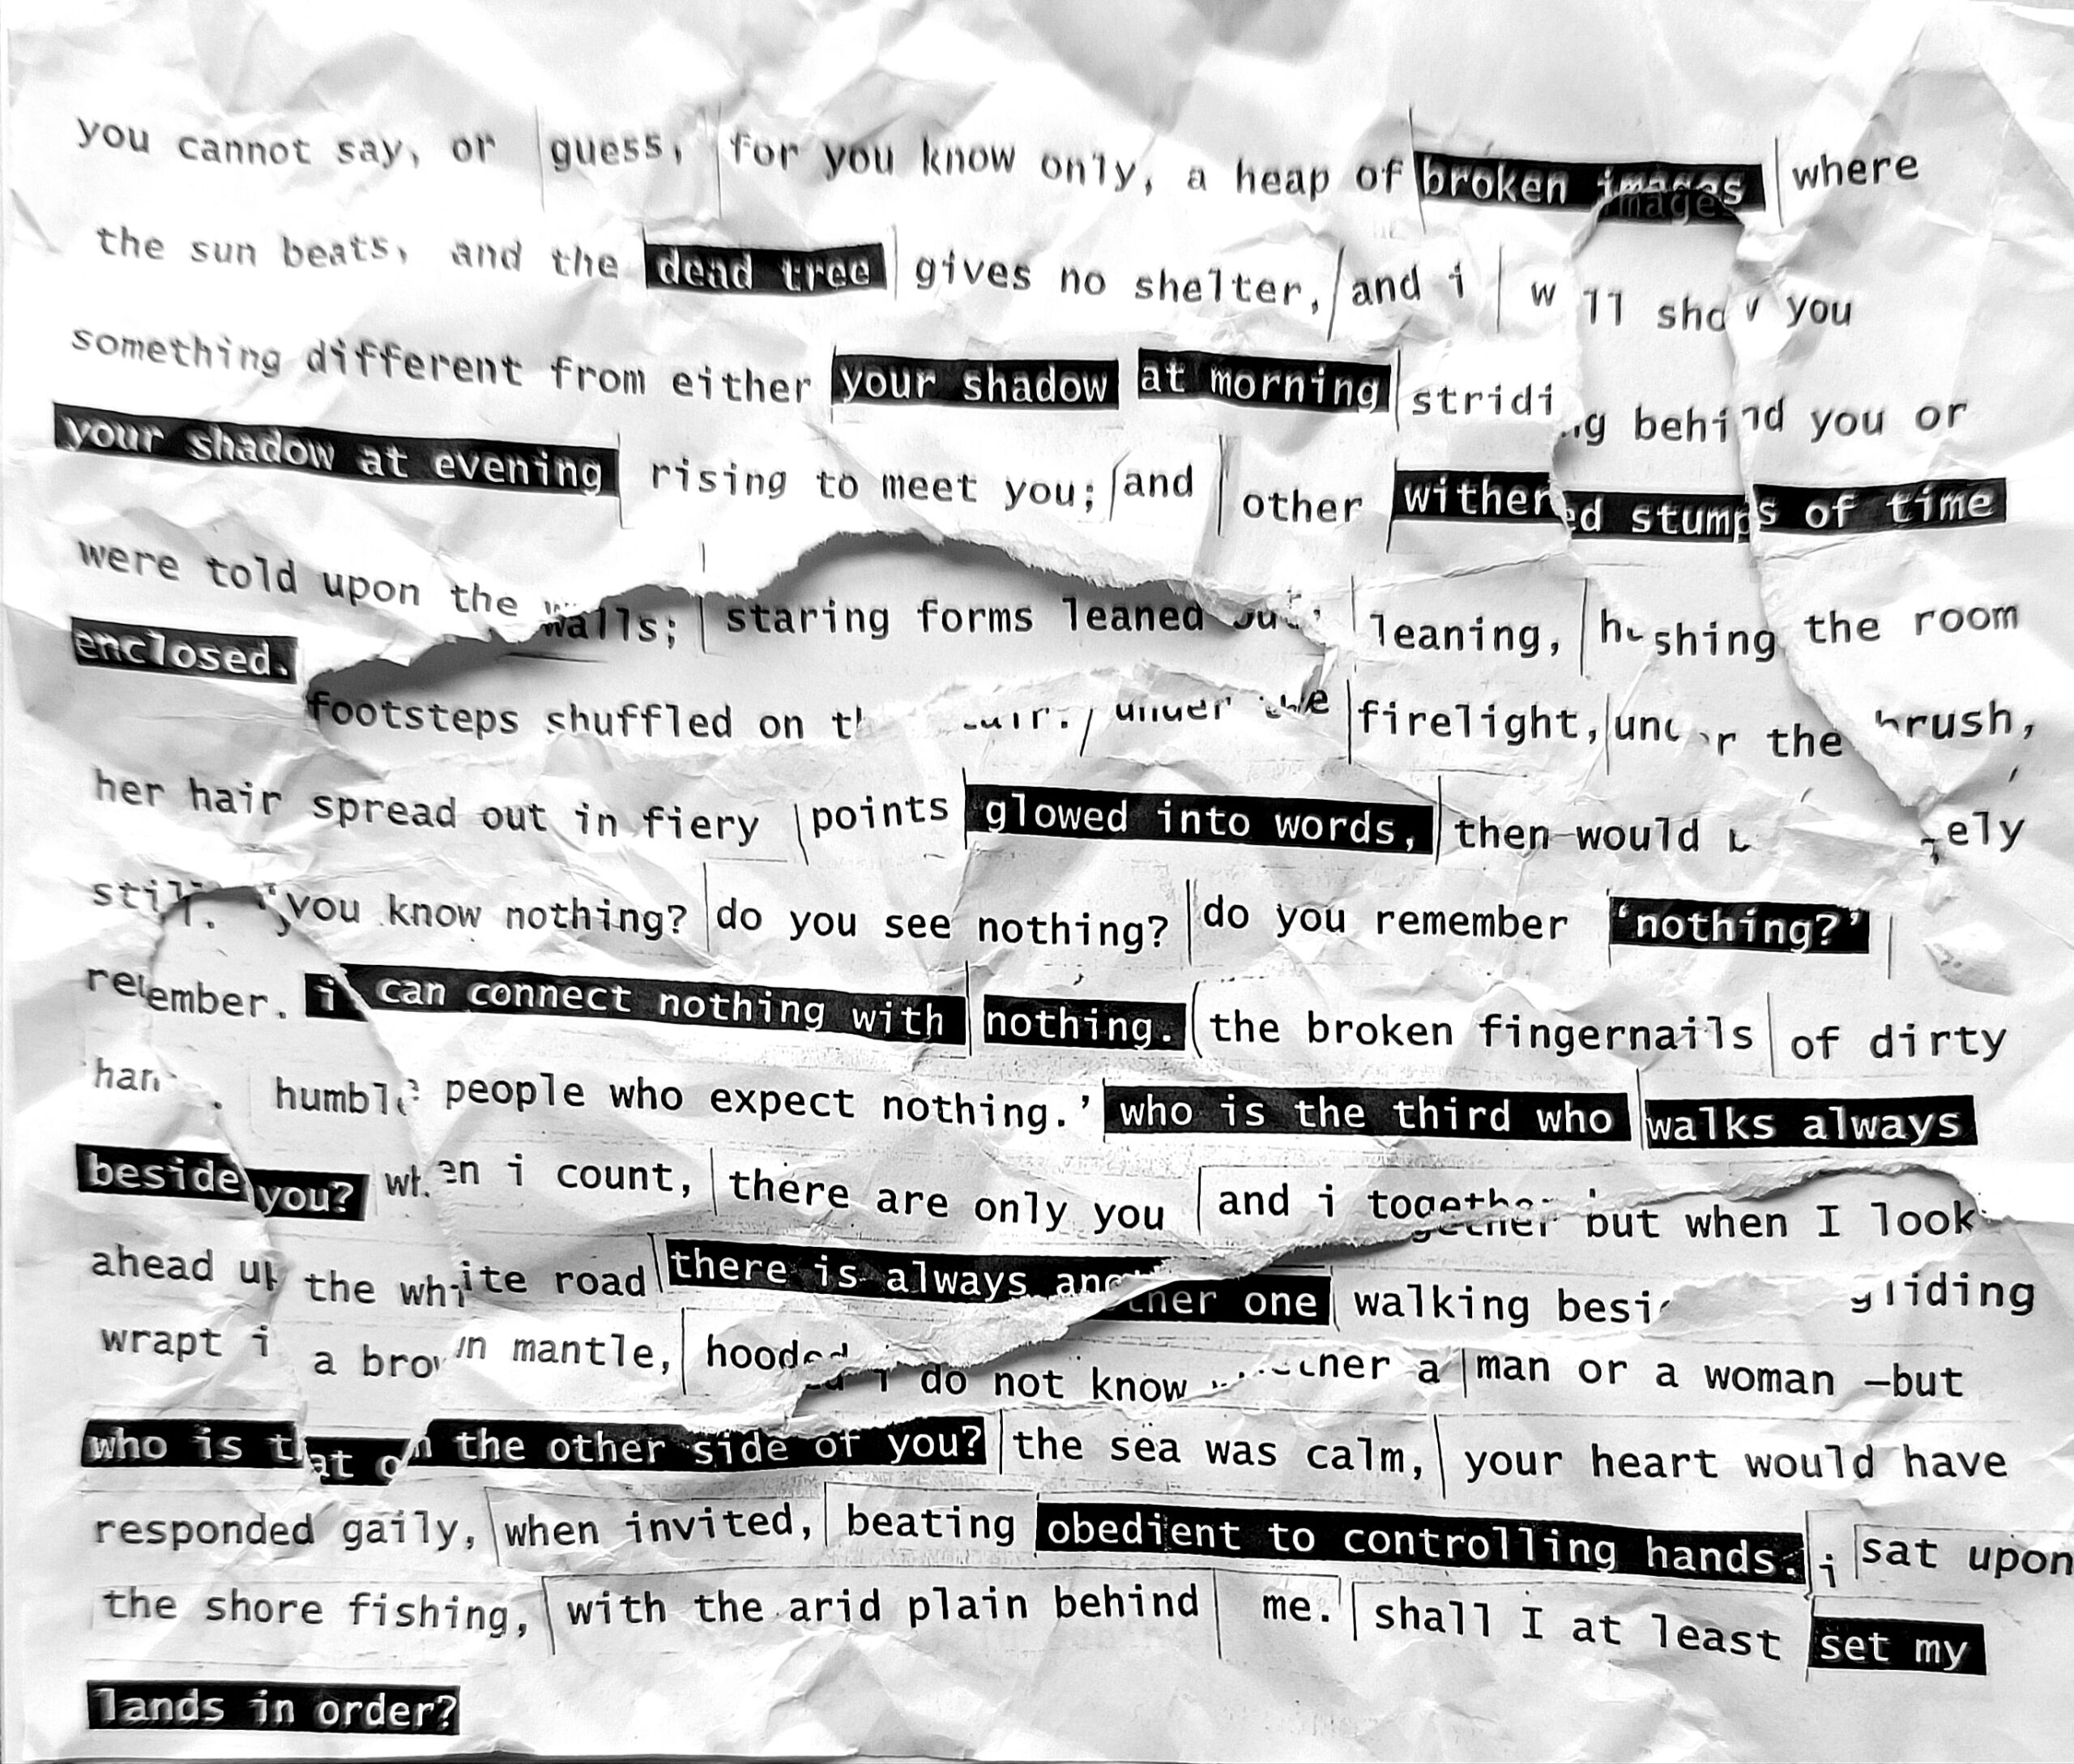 you cannot say, or guess, for you know only, a heap of broken images where
the sun beats, and the dead tree gives no shelter, and i w ll show you
something different from either your shadow at morning striding behind you or
your shadow at evening rising to meet you; and other withered stumps of time
were told upon the walls; staring forms leaned out, leaning, hushing the room
enclosed.
footsteps shuffled on th under the firelight, under the brush,
her hair spread out in fiery points glowed into words, then would ely
still. 'you know nothing? do you see nothing? do you remember 'nothing?'
remember. i can connect nothing with nothing. the broken fingernails of dirty
han . humble people who expect nothing.' who is the third who walks always
beside you? when i count, there are only you and i together but when I look
ahead up the white road there is always another one walking besi gliding
wrapt i a brown mantle, hooded i do not know a man or a woman —but
who is that on the other side of you? the sea was calm, your heart would have
responded gaily, when invited, beating obedient to controlling hands. i sat upon
the shore fishing, with the arid plain behind me. shall I at least set my
lands in order?